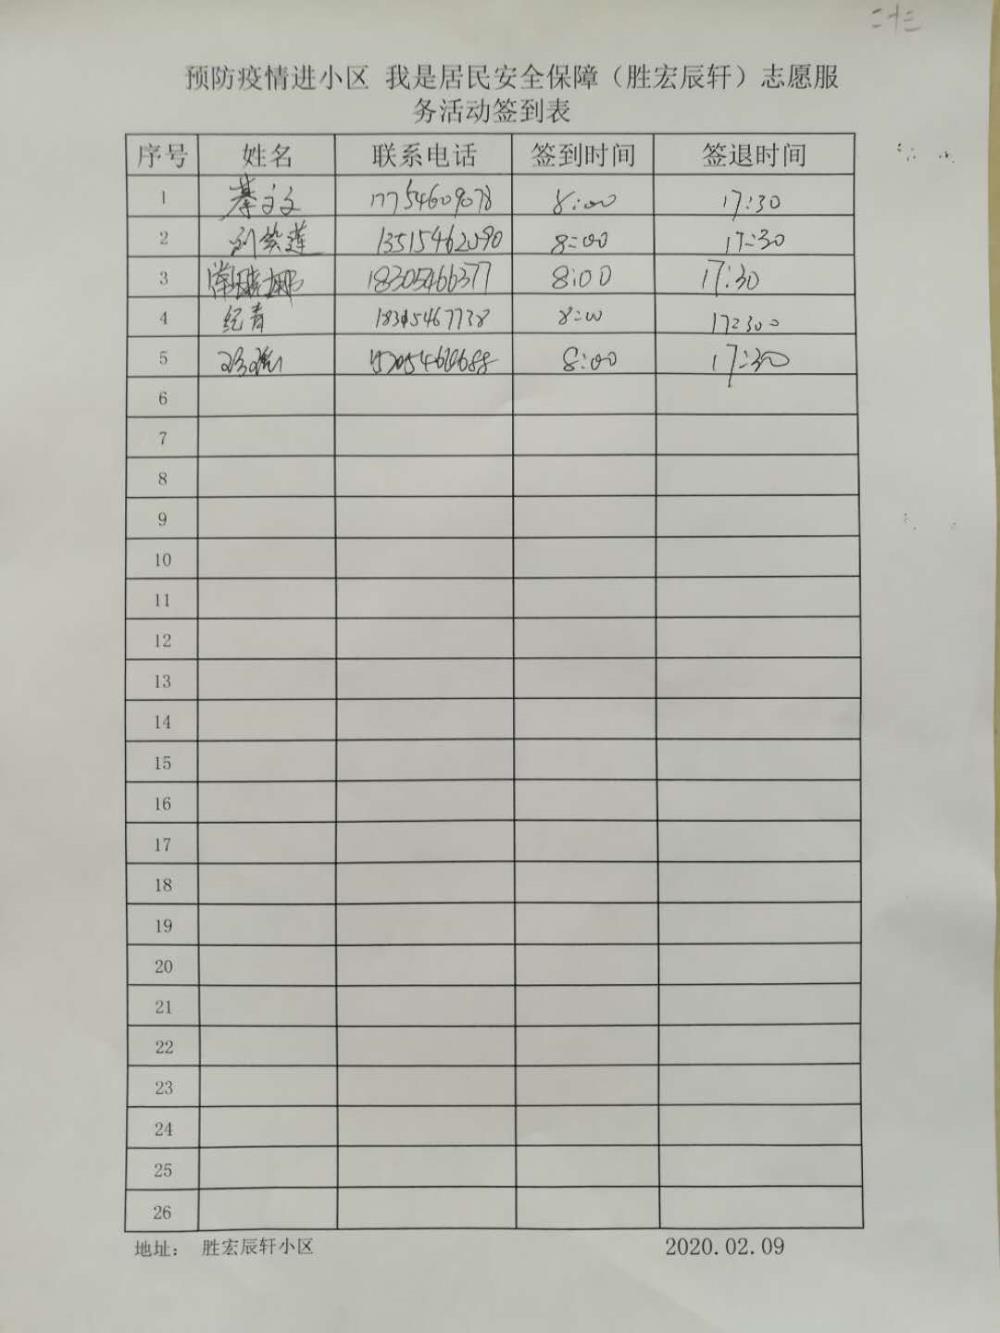 二十三
预防疫情进小区 我是居民安全保障（胜宏辰轩）志愿服
务活动签到表
序号 姓名 联系电话 签到时间 签退时间
1 綦文文 17754609078 8:00 17:30
2 13515462090 8:00 17:30
3 18305466377 8:00 17:30
4 纪青 8:00 17:30
5 8:00 17:30
6
7
8
9
10
11
12
13
14
15
16
17
18
19
20
21
22
23
24
25
26
地址： 胜宏辰轩小区 2020.02.09